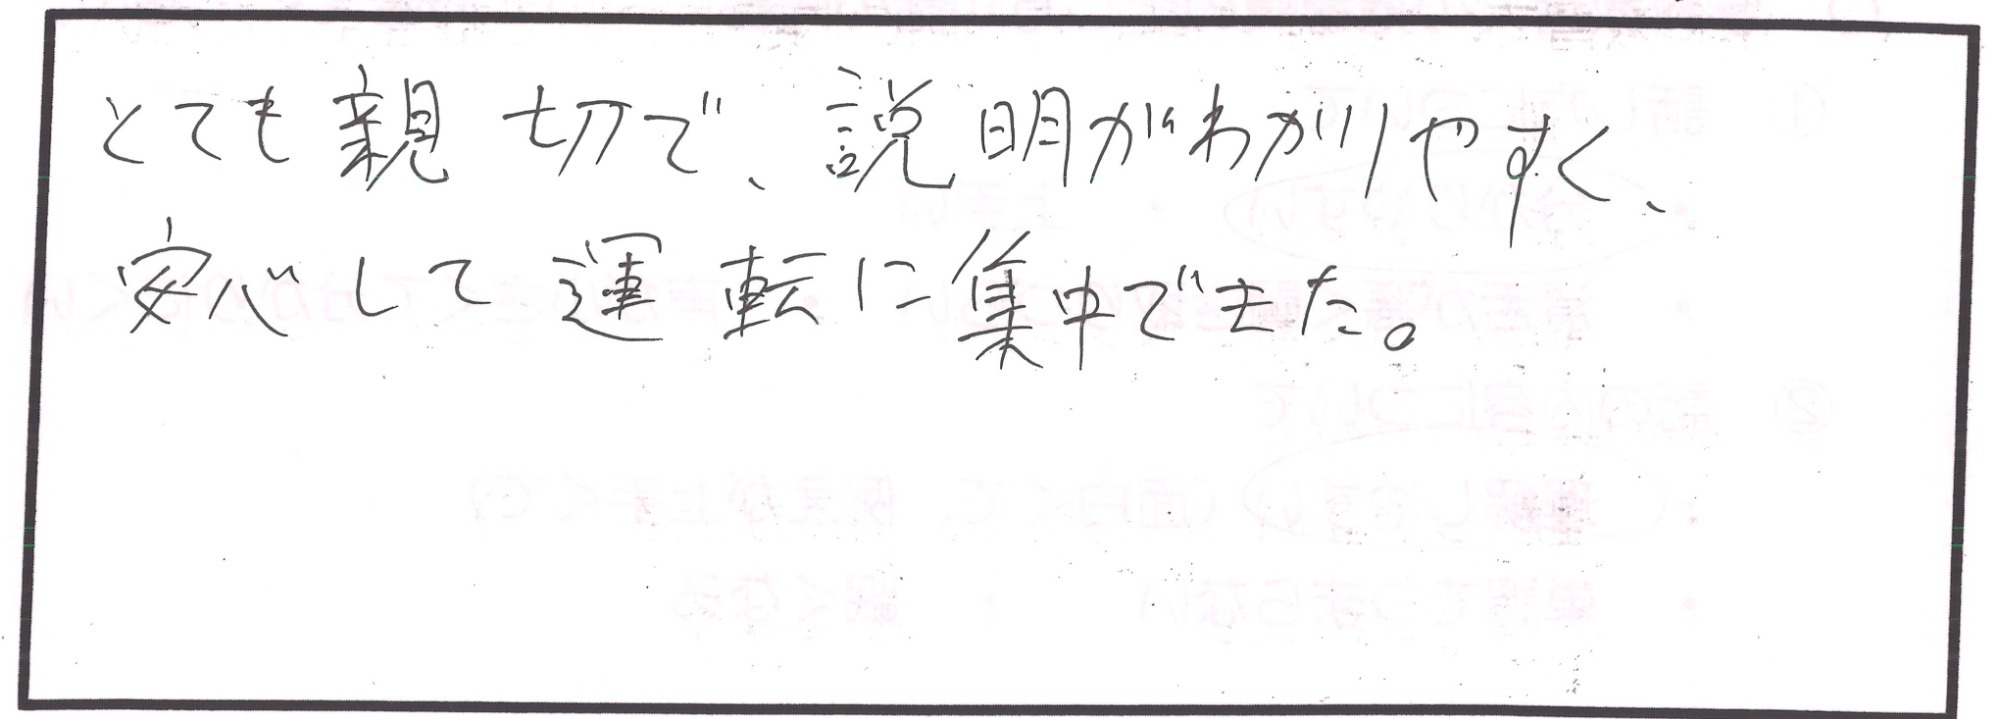 とても親切で、説明がわかりやすく、
安心して運転に集中できた。